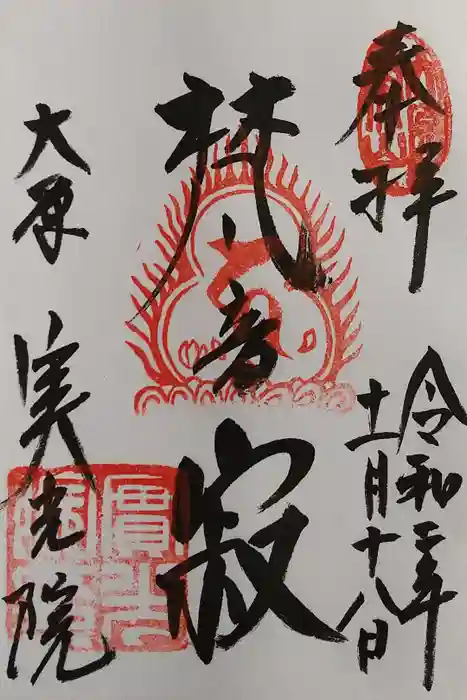 奉拝
令和二年
十一月十八日
梵音寂
大原 実光院